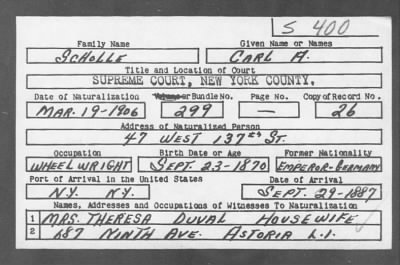 S 400
Family Name Given Name or Names
SCHOLLE CARL A.
Title and Location of Court
SUPREME COURT, NEW YORK COUNTY.
Date of Naturalization Volume or Bundle No. Page No. Copy of Record No.
MAR. 19-1906 299 - 26
Address of Naturalized Person
47 WEST 137th ST.
Occupation Birth Date or Age Former Nationality
WHEELWRIGHT SEPT. 23-1870 EMPEROR-GERMANY
Port of Arrival in the United States Date of Arrival
N.Y. N.Y. SEPT. 29-1887
Names, Addresses and Occupations of Witnesses To Naturalization
1 MRS. THERESA DUVAL HOUSEWIFE
2 687 NINTH AVE. ASTORIA L.I.